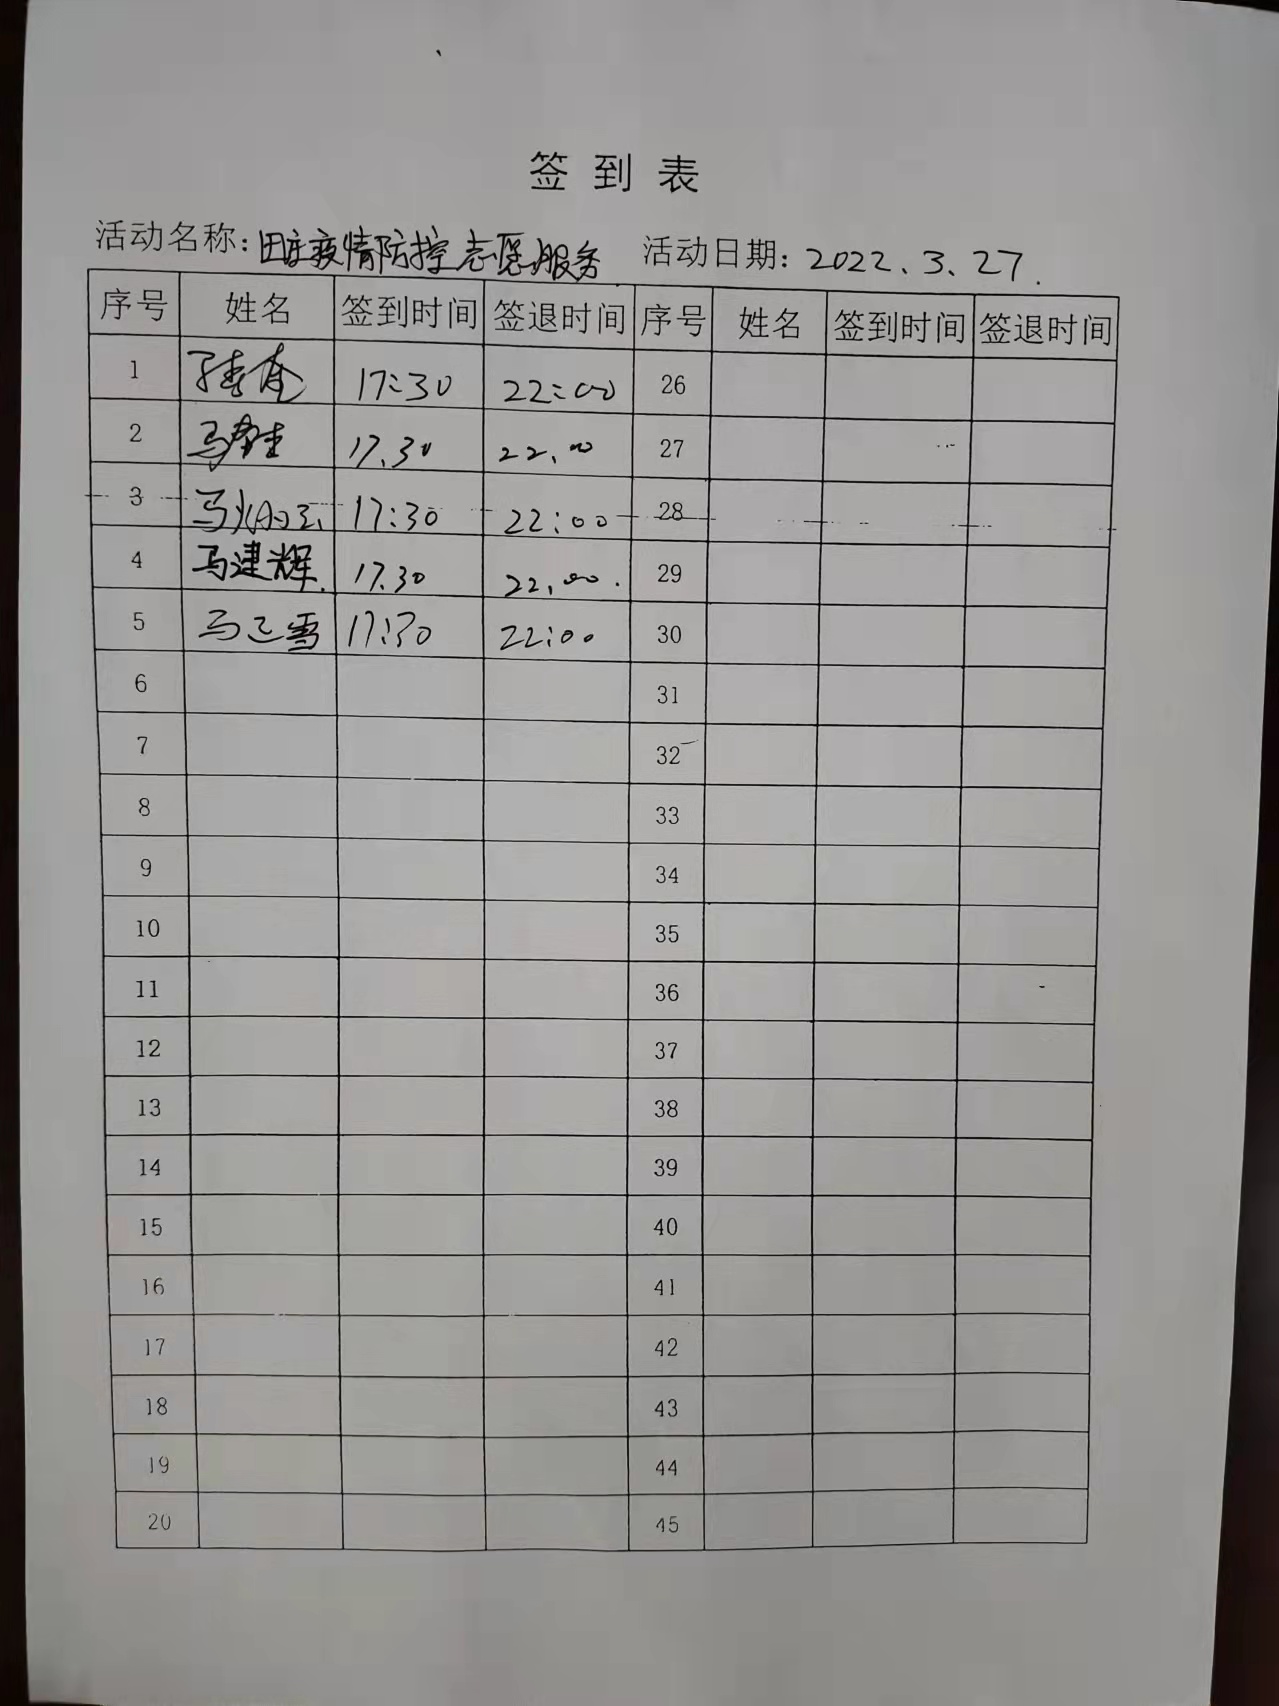 签到表
活动名称：田庄疫情防控志愿服务 活动日期：2022.3.27.
序号 姓名 签到时间 签退时间 序号 姓名 签到时间 签退时间
1 17:30 22:00 26
2 马 17.30 22.00 27
3 马 17:30 22:00 28
4 马建辉. 17.30 22.00. 29
5 马 雪 17:30 22:00 30
6 31
7 32
8 33
9 34
10 35
11 36
12 37
13 38
14 39
15 40
16 41
17 42
18 43
19 44
20 45